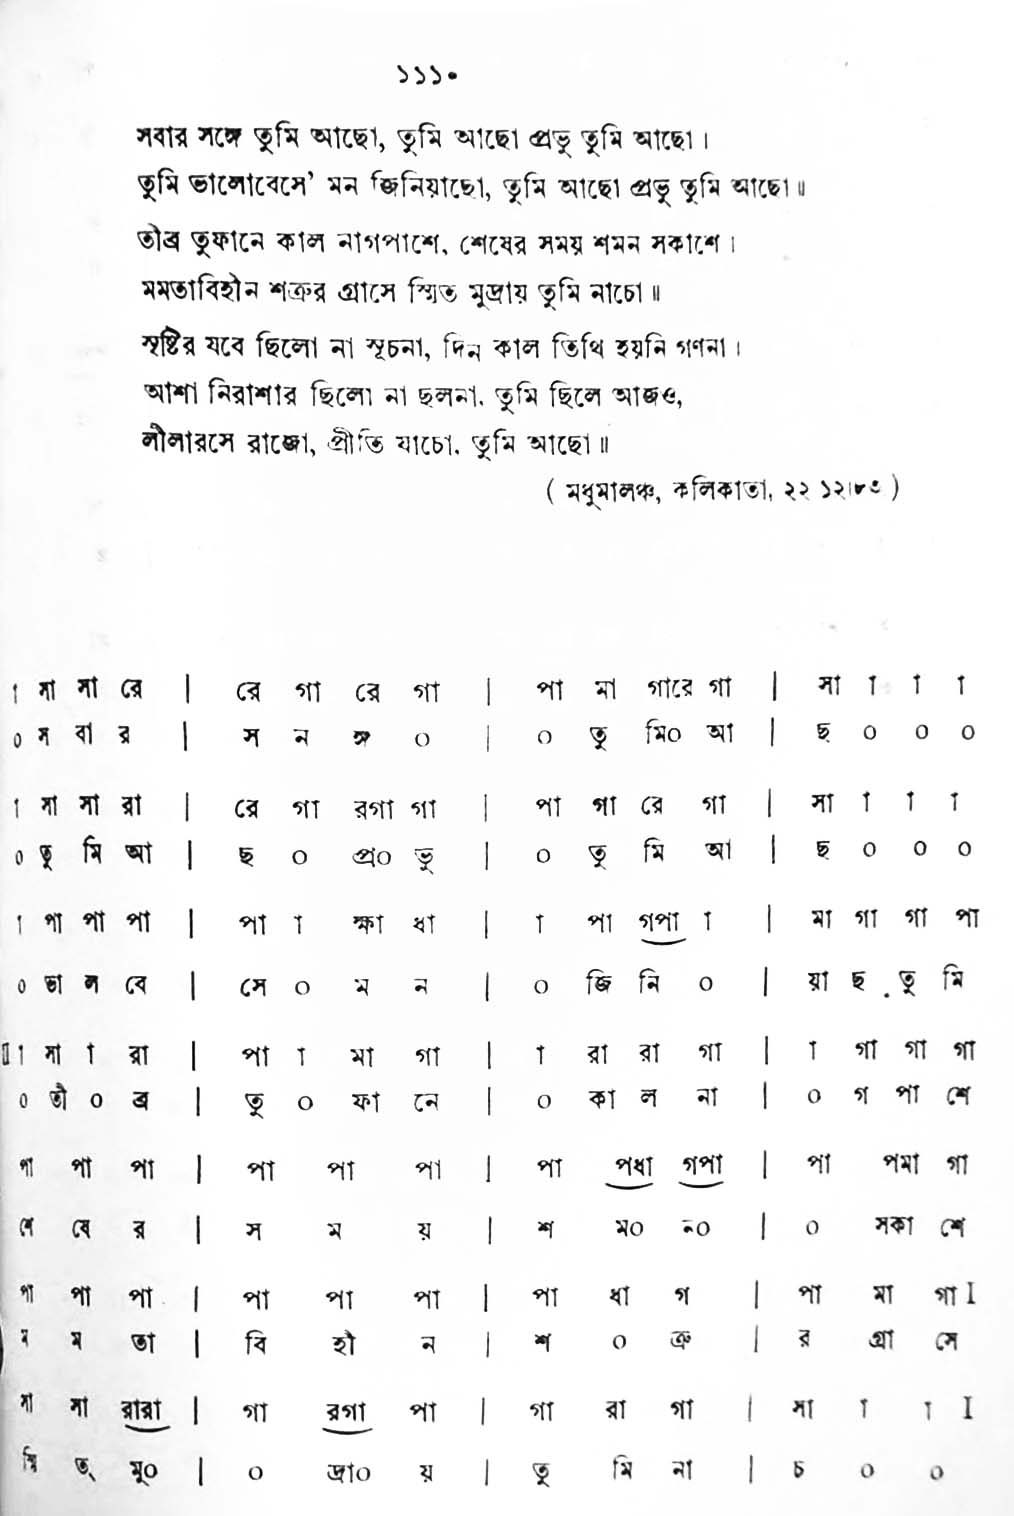 ১১১০
সবার সঙ্গে তুমি আছো, তুমি আছো প্রভু তুমি আছো।
তুমি ভালোবেসে' মন জিনিয়াছো, তুমি আছো প্রভু তুমি আছো॥
তীব্র তুফানে কাল নাগপাশে, শেষের সময় শমন সকাশে।
মমতাবিহীন শত্রুর গ্রাসে স্মিত মুদ্রায় তুমি নাচো॥
সৃষ্টির যবে ছিলো না সূচনা, দিন কাল তিথি হয়নি গণনা।
আশা নিরাশার ছিলো না ছলনা, তুমি ছিলে আজও,
লীলারসে রাজো, প্রীতি যাচো, তুমি আছো॥
( মধুমালঞ্চ, কলিকাতা, ২২ ১২।৮৩ )
া সা সা রে | রে গা রে গা | পা মা গারে গা | সা া া া
০ স বা র | স ন ঙ্গ ০ | ০ তু মি০ আ | ছ ০ ০ ০
া সা সা রা | রে গা রগা গা | পা গা রে গা | সা া া া
০ তু মি আ | ছ ০ প্র০ ভু | ০ তু মি আ | ছ ০ ০ ০
া পা পা পা | পা া ক্ষা ধা | া পা গপা া | মা গা গা পা
০ ভা ল বে | সে ০ ম ন | ০ জি নি ০ | য়া ছ তু মি
া সা া রা | পা া মা গা | া রা রা গা | া গা গা গা
০ তী ০ ব্র | তু ০ ফা নে | ০ কা ল না | ০ গ পা শে
পা পা পা | পা পা পা | পা পধা গপা | পা পমা গা
শে ষে র | স ম য় | শ ম০ ন০ | ০ সকা শে
পা পা পা | পা পা পা | পা ধা গ | পা মা গা I
ম ম তা | বি হী ন | শ ০ ত্রু | র গ্রা সে
সা সা রারা | গা রগা পা | গা রা গা | সা া া I
স্মি ত্ মু০ | ০ দ্রা০ য় | তু মি না | চ ০ ০